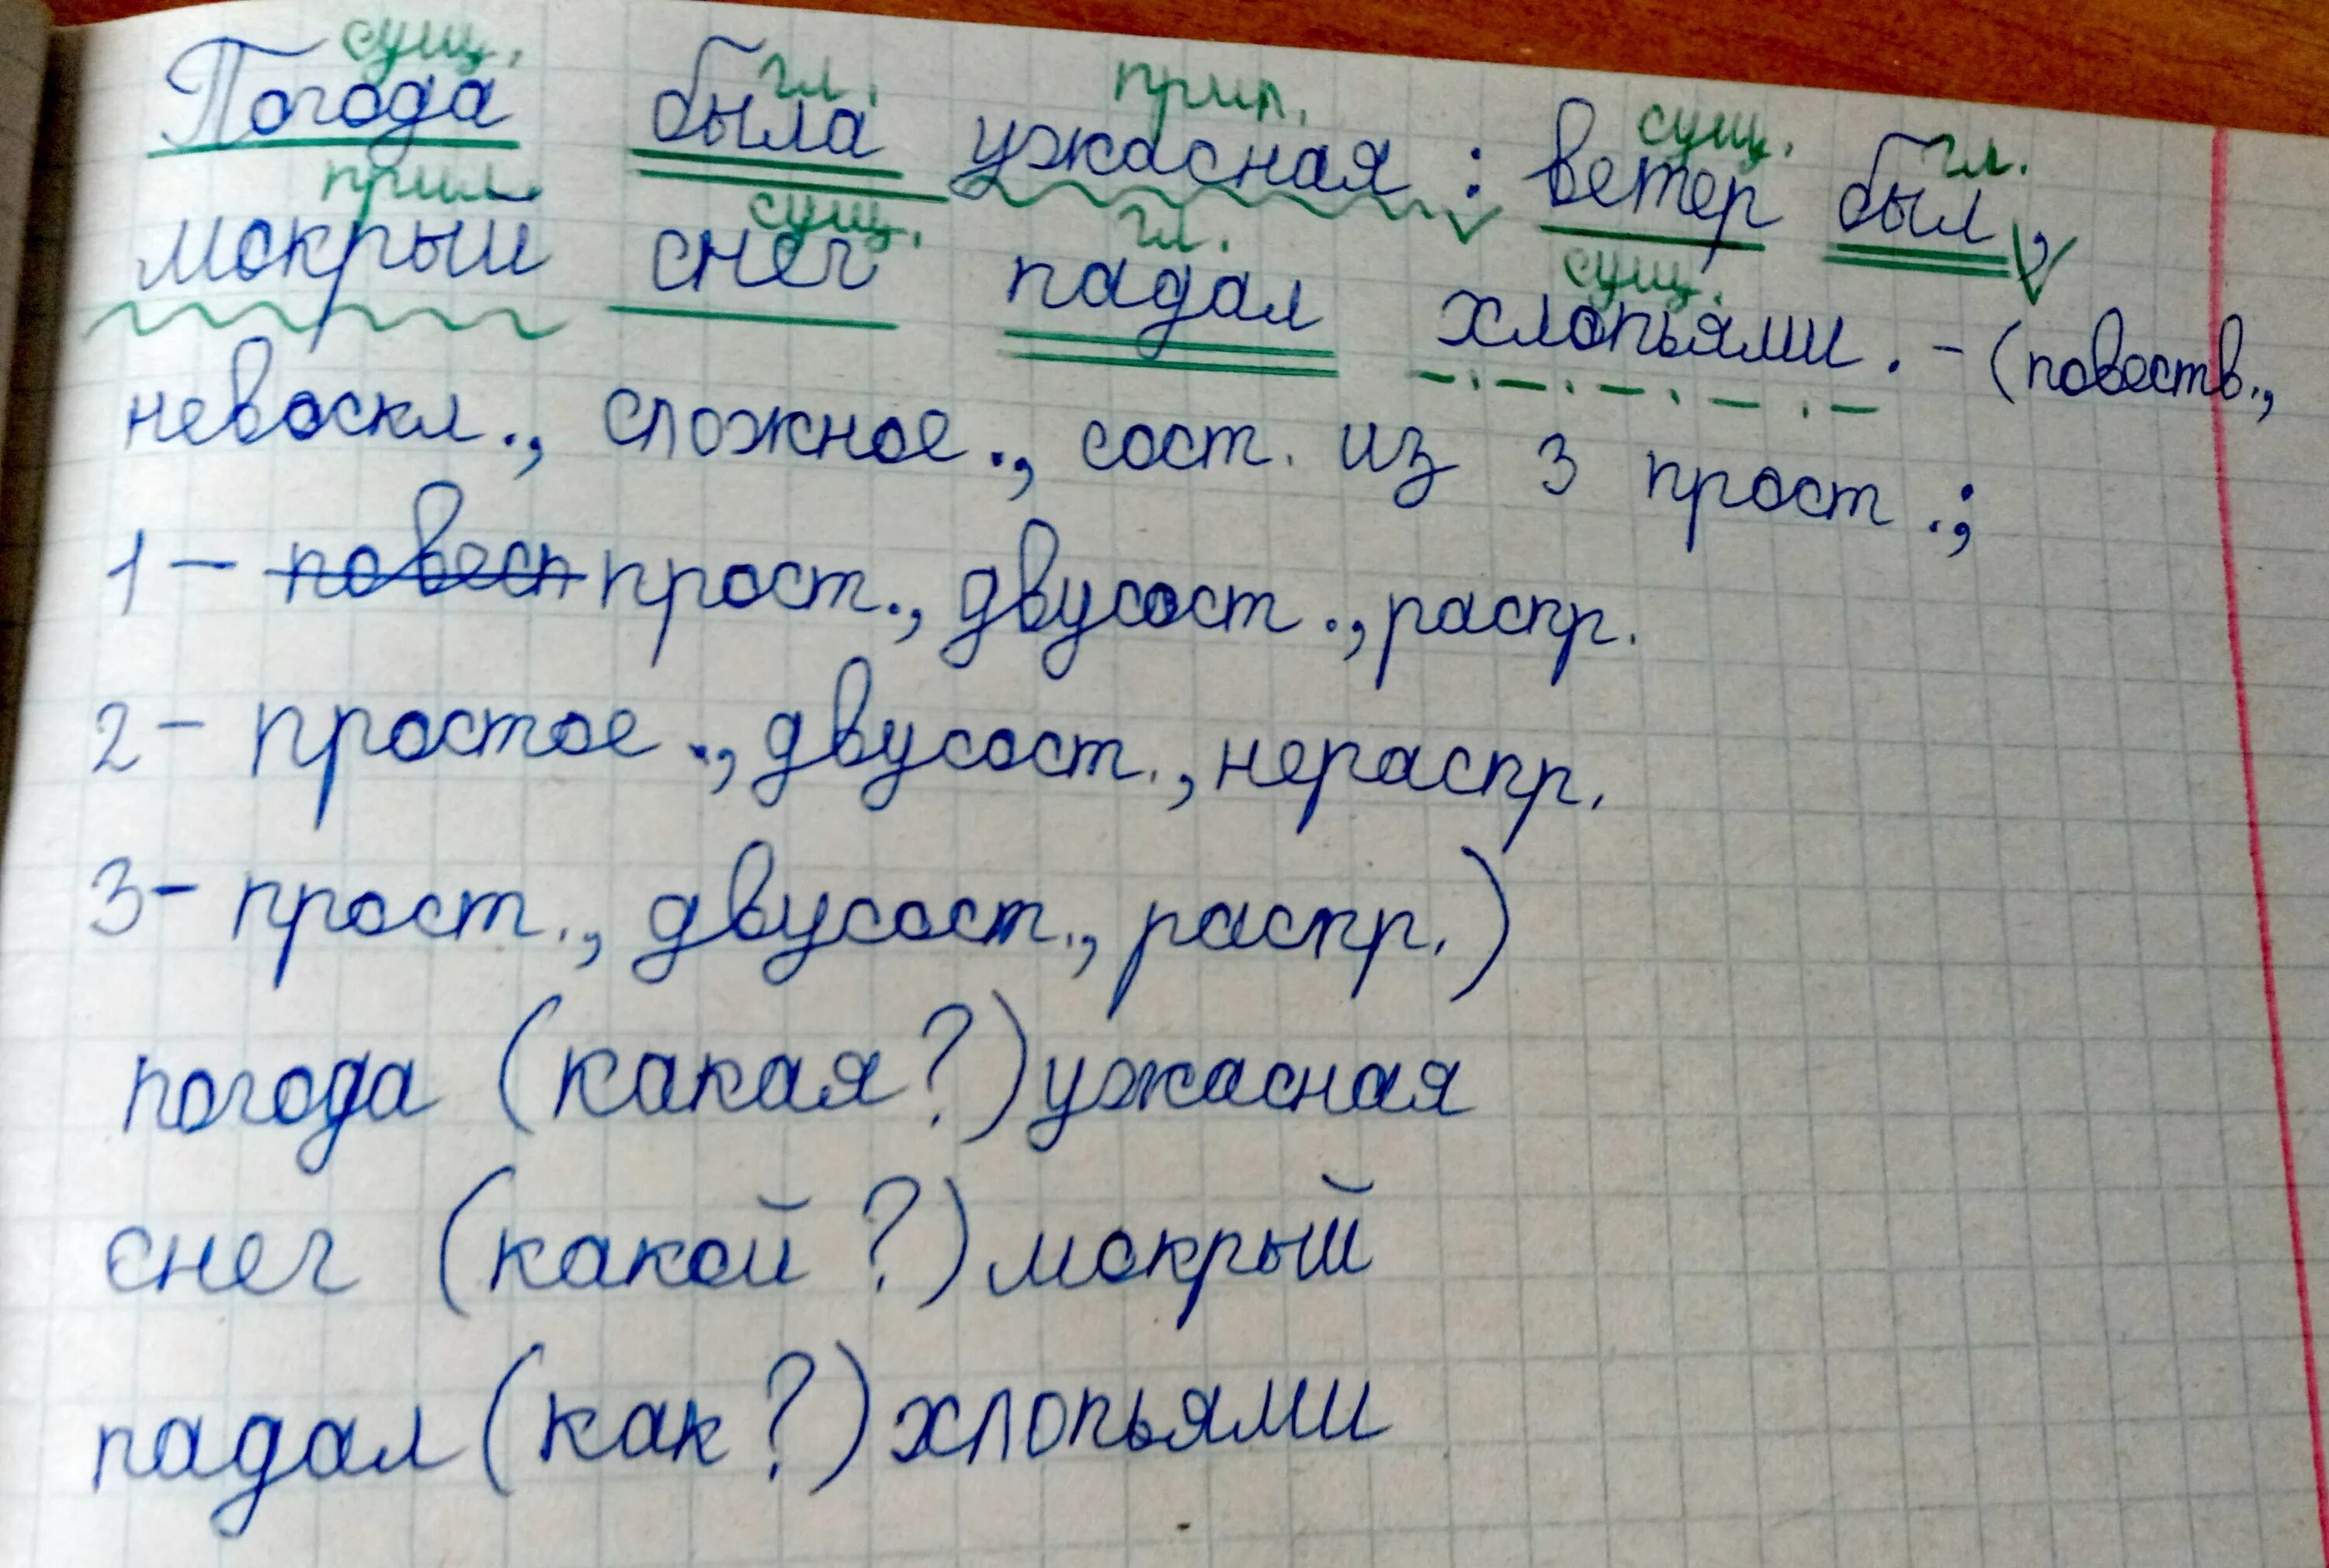 сущ. гл. прил. сущ. гл.
Погода была ужасная : ветер был,
прил. сущ. гл. сущ.
мокрый снег падал хлопьями. - (повеств.,
невоскл., сложное., сост. из 3 прост.;
1 - повесп прост., двусост., распр.
2 - простое., двусост., нераспр.
3 - прост., двусост., распр.)
погода (какая?) ужасная
снег (какой?) мокрый
падал (как?) хлопьями